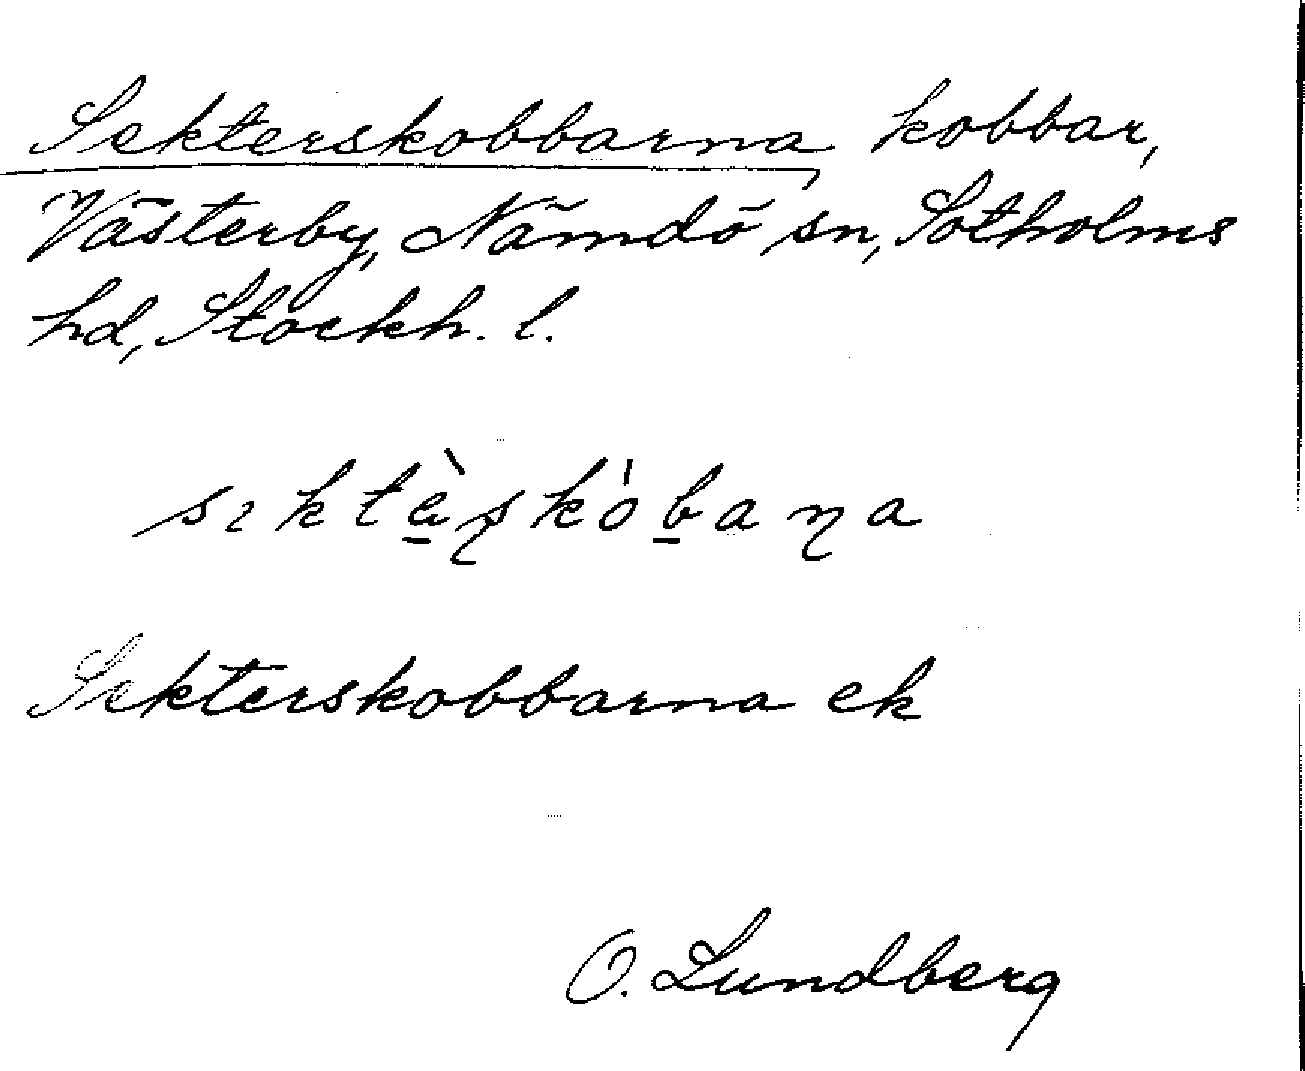 Sekterskobbarna, kobbar,
Västerby, Nämdö sn, Sotholms
hd, Stockh. l.
Sekterskobbarna ek
O. Lundberg